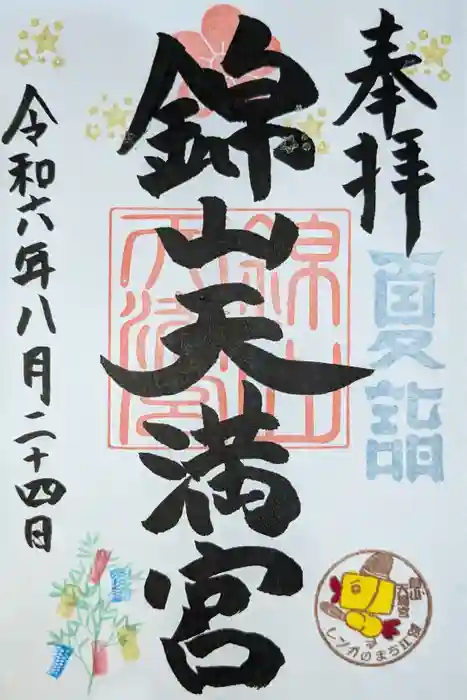 奉拝
夏詣
錦山天満宮
錦山天満宮
令和六年八月二十四日
レンガのまち江別